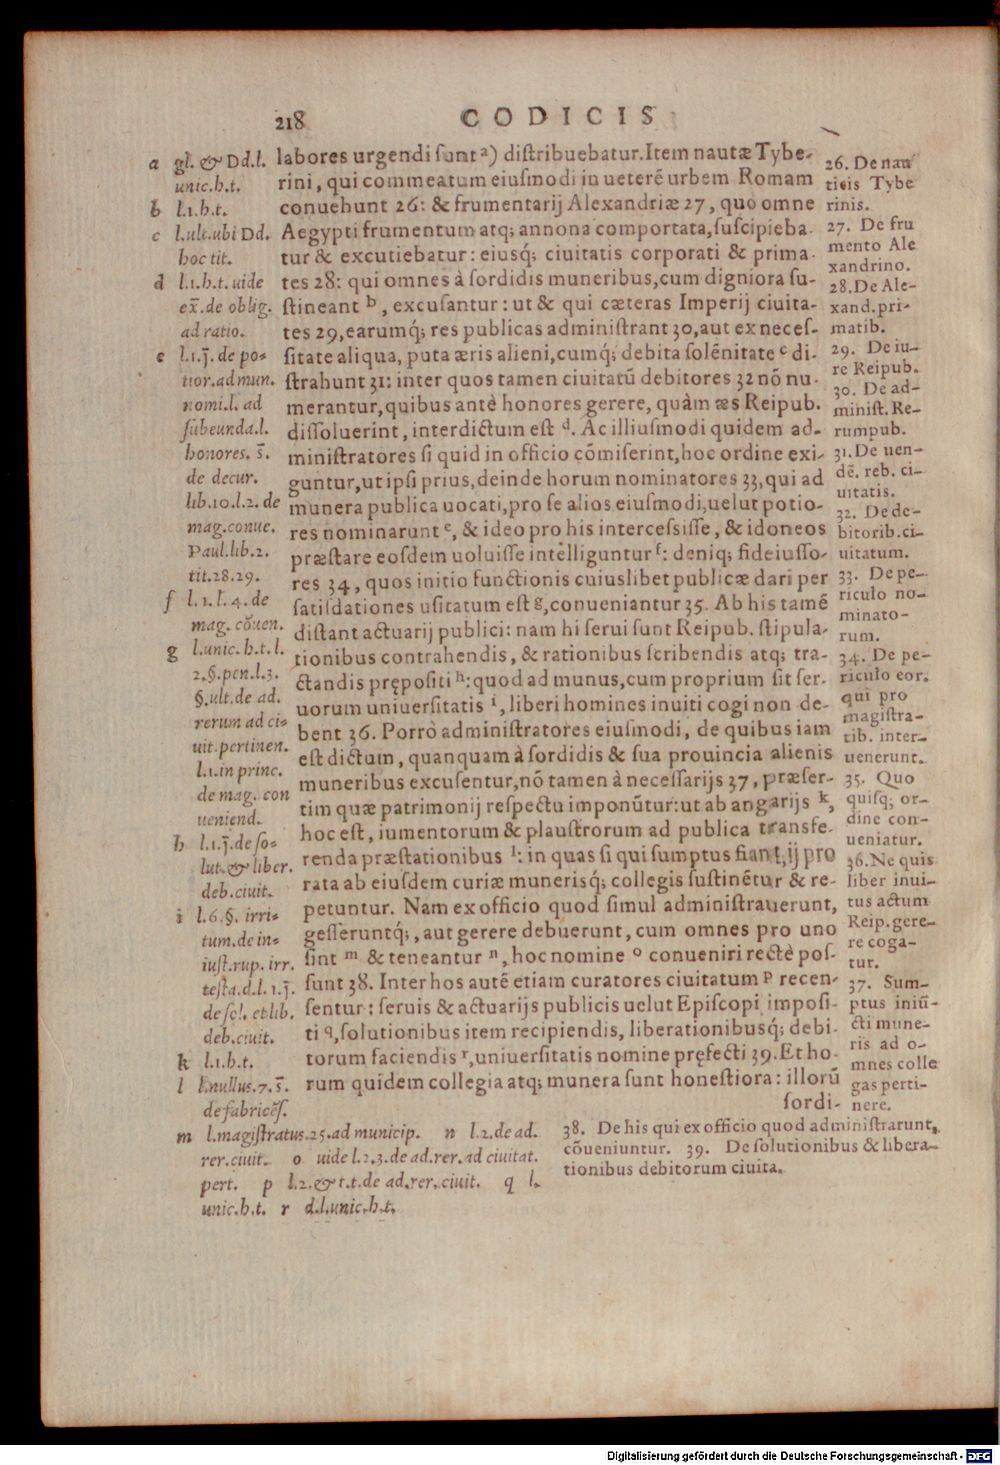 218 CODICIS
labores urgendi ſunt ᵃ) diſtribuebatur. Item nautæ Tybe-
rini, qui commeatum eiuſmodi in ueterē urbem Romam
conuehunt 26: & frumentarij Alexandriæ 27, quo omne
Aegypti frumentum atq; annona comportata, ſuſcipieba-
tur & excutiebatur: eiusq́; ciuitatis corporati & prima-
tes 28: qui omnes à ſordidis muneribus, cum digniora ſu-
ſtineant ᵇ, excuſantur: ut & qui cæteras Imperij ciuita-
tes 29, earumq́; res publicas adminiſtrant 30, aut ex neceſ-
ſitate aliqua, puta æris alieni, cumq́; debita ſolēnitate ᶜ di-
ſtrahunt 31: inter quos tamen ciuitatū debitores 32 nō nu-
merantur, quibus antè honores gerere, quàm æs Reipub.
diſſoluerint, interdictum eſt ᵈ. Ac illiuſmodi quidem ad-
miniſtratores ſi quid in officio cōmiſerint, hoc ordine exi-
guntur, ut ipſi prius, deinde horum nominatores 33, qui ad
munera publica uocati, pro ſe alios eiuſmodi, uelut potio-
res nominarunt ᵉ, & ideo pro his interceſsiſſe, & idoneos
præſtare eoſdem uoluiſſe intelliguntur ᶠ: deniq; fideiuſſo-
res 34, quos initio functionis cuiuslibet publicæ dari per
ſatiſdationes uſitatum eſt ᵍ, conueniantur 35. Ab his tamē
diſtant actuarij publici: nam hi ſerui ſunt Reipub. ſtipula-
tionibus contrahendis, & rationibus ſcribendis atq; tra-
ctandis prępoſiti ʰ: quod ad munus, cum proprium ſit ſer-
uorum uniuerſitatis ⁱ, liberi homines inuiti cogi non de-
bent 36. Porrò adminiſtratores eiuſmodi, de quibus iam
eſt dictum, quanquam à ſordidis & ſua prouincia alienis
muneribus excuſentur, nō tamen à neceſſarijs 37, præſer-
tim quæ patrimonij reſpectu imponūtur: ut ab angarijs ᵏ,
hoc eſt, iumentorum & plauſtrorum ad publica transfe-
renda præſtationibus ˡ: in quas ſi qui ſumptus fiant, ij pro
rata ab eiuſdem curiæ munerisq́; collegis ſuſtinētur & re-
petuntur. Nam ex officio quod ſimul adminiſtrauerunt,
geſſeruntq́;, aut gerere debuerunt, cum omnes pro uno
ſint ᵐ & teneantur ⁿ, hoc nomine ᵒ conueniri rectè poſ-
ſunt 38. Inter hos autē etiam curatores ciuitatum ᵖ recen-
ſentur: ſeruis & actuarijs publicis uelut Epiſcopi impoſi-
ti ᑫ, ſolutionibus item recipiendis, liberationibusq́; debi-
torum faciendis ʳ, uniuerſitatis nomine pręfecti 39. Et ho-
rum quidem collegia atq; munera ſunt honeſtiora: illorū
ſordi-
a gl. & Dd. l.
unic. h. t.
b l. 1. h. t.
c l. ult. ubi Dd.
hoc tit.
d l. 1. h. t. uide
ex̄. de oblig.
ad ratio.
e l. 1. j̄. de po-
tior. ad mun.
nomi. l. ad
ſubeunda. l.
honores. s̄.
de decur.
lib. 10. l. 2. de
mag. conue.
Paul. lib. 2.
tit. 28. 29.
f l. 1. l. 4. de
mag. cōuen.
g l. unic. h. t. l.
2. §. pen. l. 3.
§. ult. de ad.
rerum ad ci-
uit. pertinen.
l. 1. in princ.
de mag. con
ueniend.
h l. 1. j̄. de ſo-
lut. & liber.
deb. ciuit.
i l. 6. §. irri-
tum. de in-
iuſt. rup. irr.
teſta. d. l. 1. j̄.
de ſol. et lib.
deb. ciuit.
k l. 1. h. t.
l l. nullus. 7. s̄.
de fabricēſ.
m l. magiſtratus. 25. ad municip. n l. 2. de ad.
rer. ciuit. o uide l. 2. 3. de ad. rer. ad ciuitat.
pert. p l. 2. & t. t. de ad. rer. ciuit. q l.
unic. h. t. r d. l. unic. h. t.
26. De nau
ticis Tybe
rinis.
27. De fru
mento Ale
xandrino.
28. De Ale-
xand. pri-
matib.
29. De iu-
re Reipub.
30. De ad-
miniſt. Re-
rumpub.
31. De uen-
dē. reb. ci-
uitatis.
32. De de-
bitorib. ci-
uitatum.
33. De pe-
riculo no-
minato-
rum.
34. De pe-
riculo eor.
qui pro
magiſtra-
tib. inter-
uenerunt.
35. Quo
quiſq; or-
dine con-
ueniatur.
36. Ne quis
liber inui-
tus actum
Reip. gere-
re coga-
tur.
37. Sum-
ptus iniū-
cti mune-
ris ad o-
mnes colle
gas perti-
nere.
38. De his qui ex officio quod adminiſtrarunt,
cōueniuntur. 39. De ſolutionibus & libera-
tionibus debitorum ciuita.
Digitalisierung gefördert durch die Deutsche Forschungsgemeinschaft - DFG